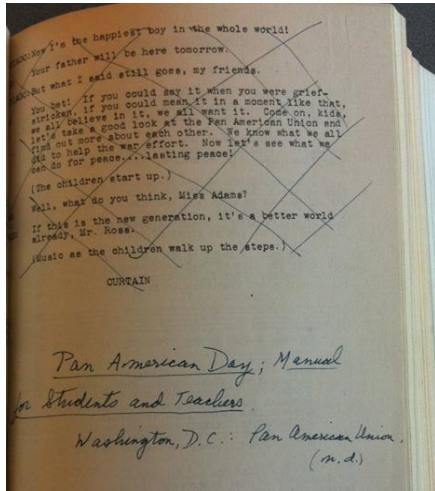 Now I'm the happiest boy in the whole world!
Your father will be here tomorrow.
But what I said still goes, my friends.
You bet! If you could say it when you were grief-
stricken, if you could mean it in a moment like that,
we all believe in it, we all want it. Come on, kids,
let's take a good look at the Pan American Union and
find out more about each other. We know what we all
did to help the war effort. Now let's see what we
can do for peace....lasting peace!
(The children start up.)
Well, what do you think, Miss Adams?
If this is the new generation, it's a better world
already, Mr. Ross.
(Music as the children walk up the steps.)
CURTAIN
Pan American Day; Manual
for Students and Teachers.
Washington, D.C.: Pan American Union.
(n.d.)